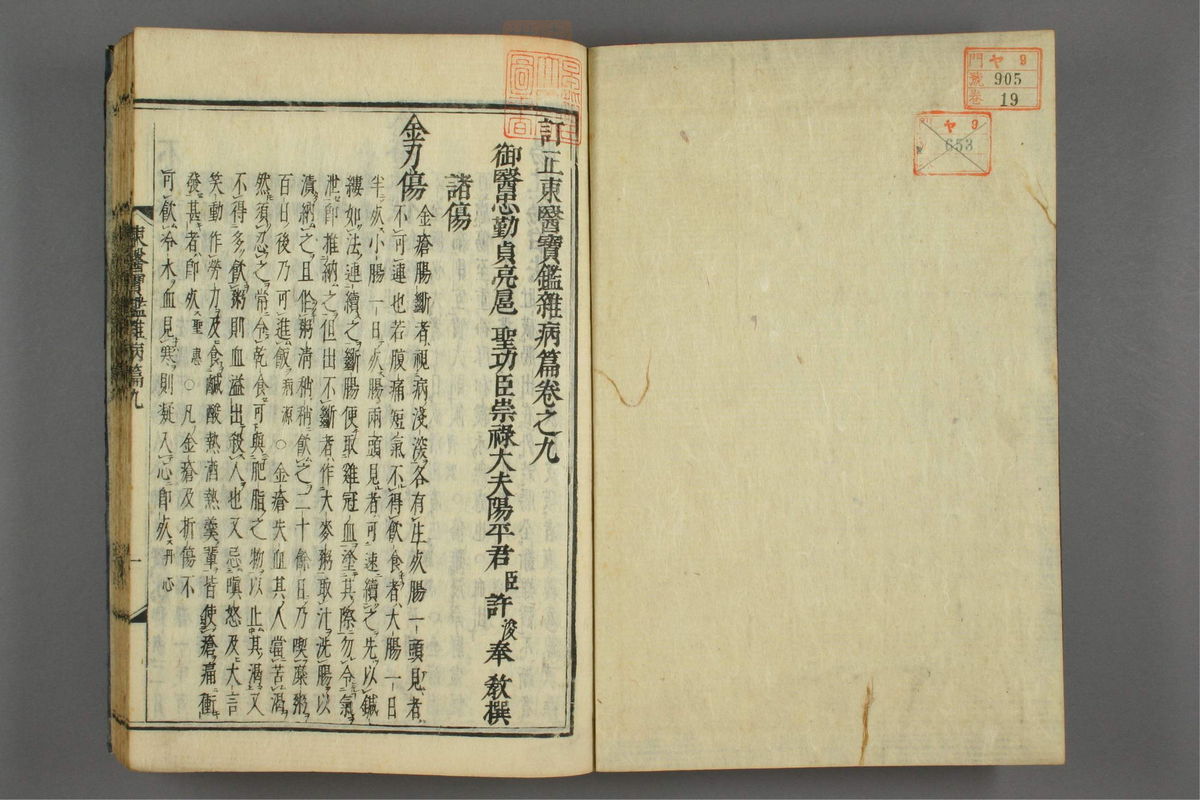 門 ヤ 9
號 905
卷 19
ヤ 9
653
訂正東醫寶鑑雜病篇卷之九
御醫忠勤貞亮扈 聖功臣崇祿大夫陽平君 臣 許 浚 奉 敎撰
諸傷
金刃傷
金瘡腸斷者視病淺深各有生死腸一頭見者
不可連也若腹痛短氣不得飮食者大腸一日
半死小腸一日死腸兩頭見者可速續之先以鍼
縷如法連續之斷腸便取雞冠血塗其際勿令氣
泄卽推納之但出不斷者作大麥粥取汁洗腸以
漬納之且作粥淸稍稍飮之二十餘日乃喫糜粥
百日後乃可進飯病源○金瘡失血其人當苦渴
然須忍之常令乾食可與肥脂之物以止其渴又
不得多飮粥則血溢出殺人也又忌嗔怒及大言
笑動作勞力及食鹹酸熱酒熱羹輩皆使瘡痛衝
發甚者卽死聖惠○凡金瘡及折傷不
可飮冷水血見寒則凝入心卽死丹心
東醫寶鑑雜病篇九
一